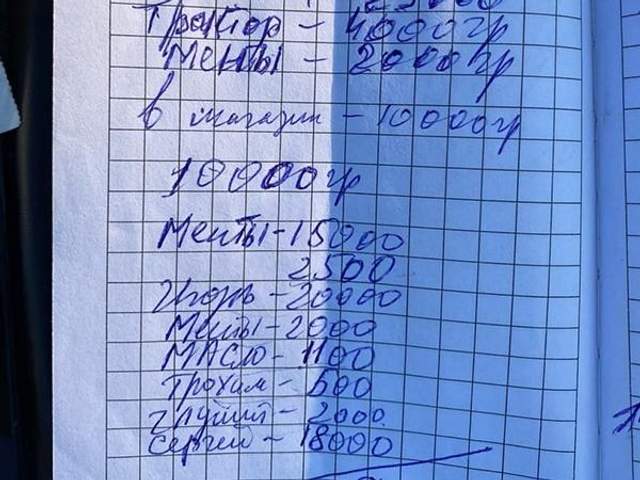 Трактор - 4000гр
Менты - 2000гр
в магазин - 10000гр
10000гр
Менты - 15000
2500
Игорь - 20000
Менты - 2000
МАСЛО - 1100
Трохим - 500
Глухий - 2000
Сергей - 18000